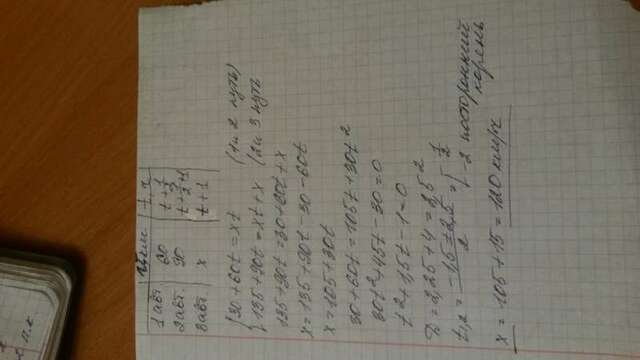 v км/ч t ч
1 авт 60 t + 1/2
2 авт 90 t + 1/2 + 1
3 авт x t + 1
{ 30 + 60t = xt (1 и 2 путь)
{ 135 + 90t = xt + x (2 и 3 путь
135 + 90t = 30 + 60t + x
x = 135 + 90t - 30 - 60t
x = 105 + 30t
30 + 60t = 105t + 30t²
30t² + 45t - 30 = 0
t² + 1,5t - 1 = 0
D = 2,25 + 4 = 2,5²
t₁,₂ = (-1,5 ± 2,5)/2 = [ -2 посторонний корень
1/2
x = 105 + 15 = 120 км/ч